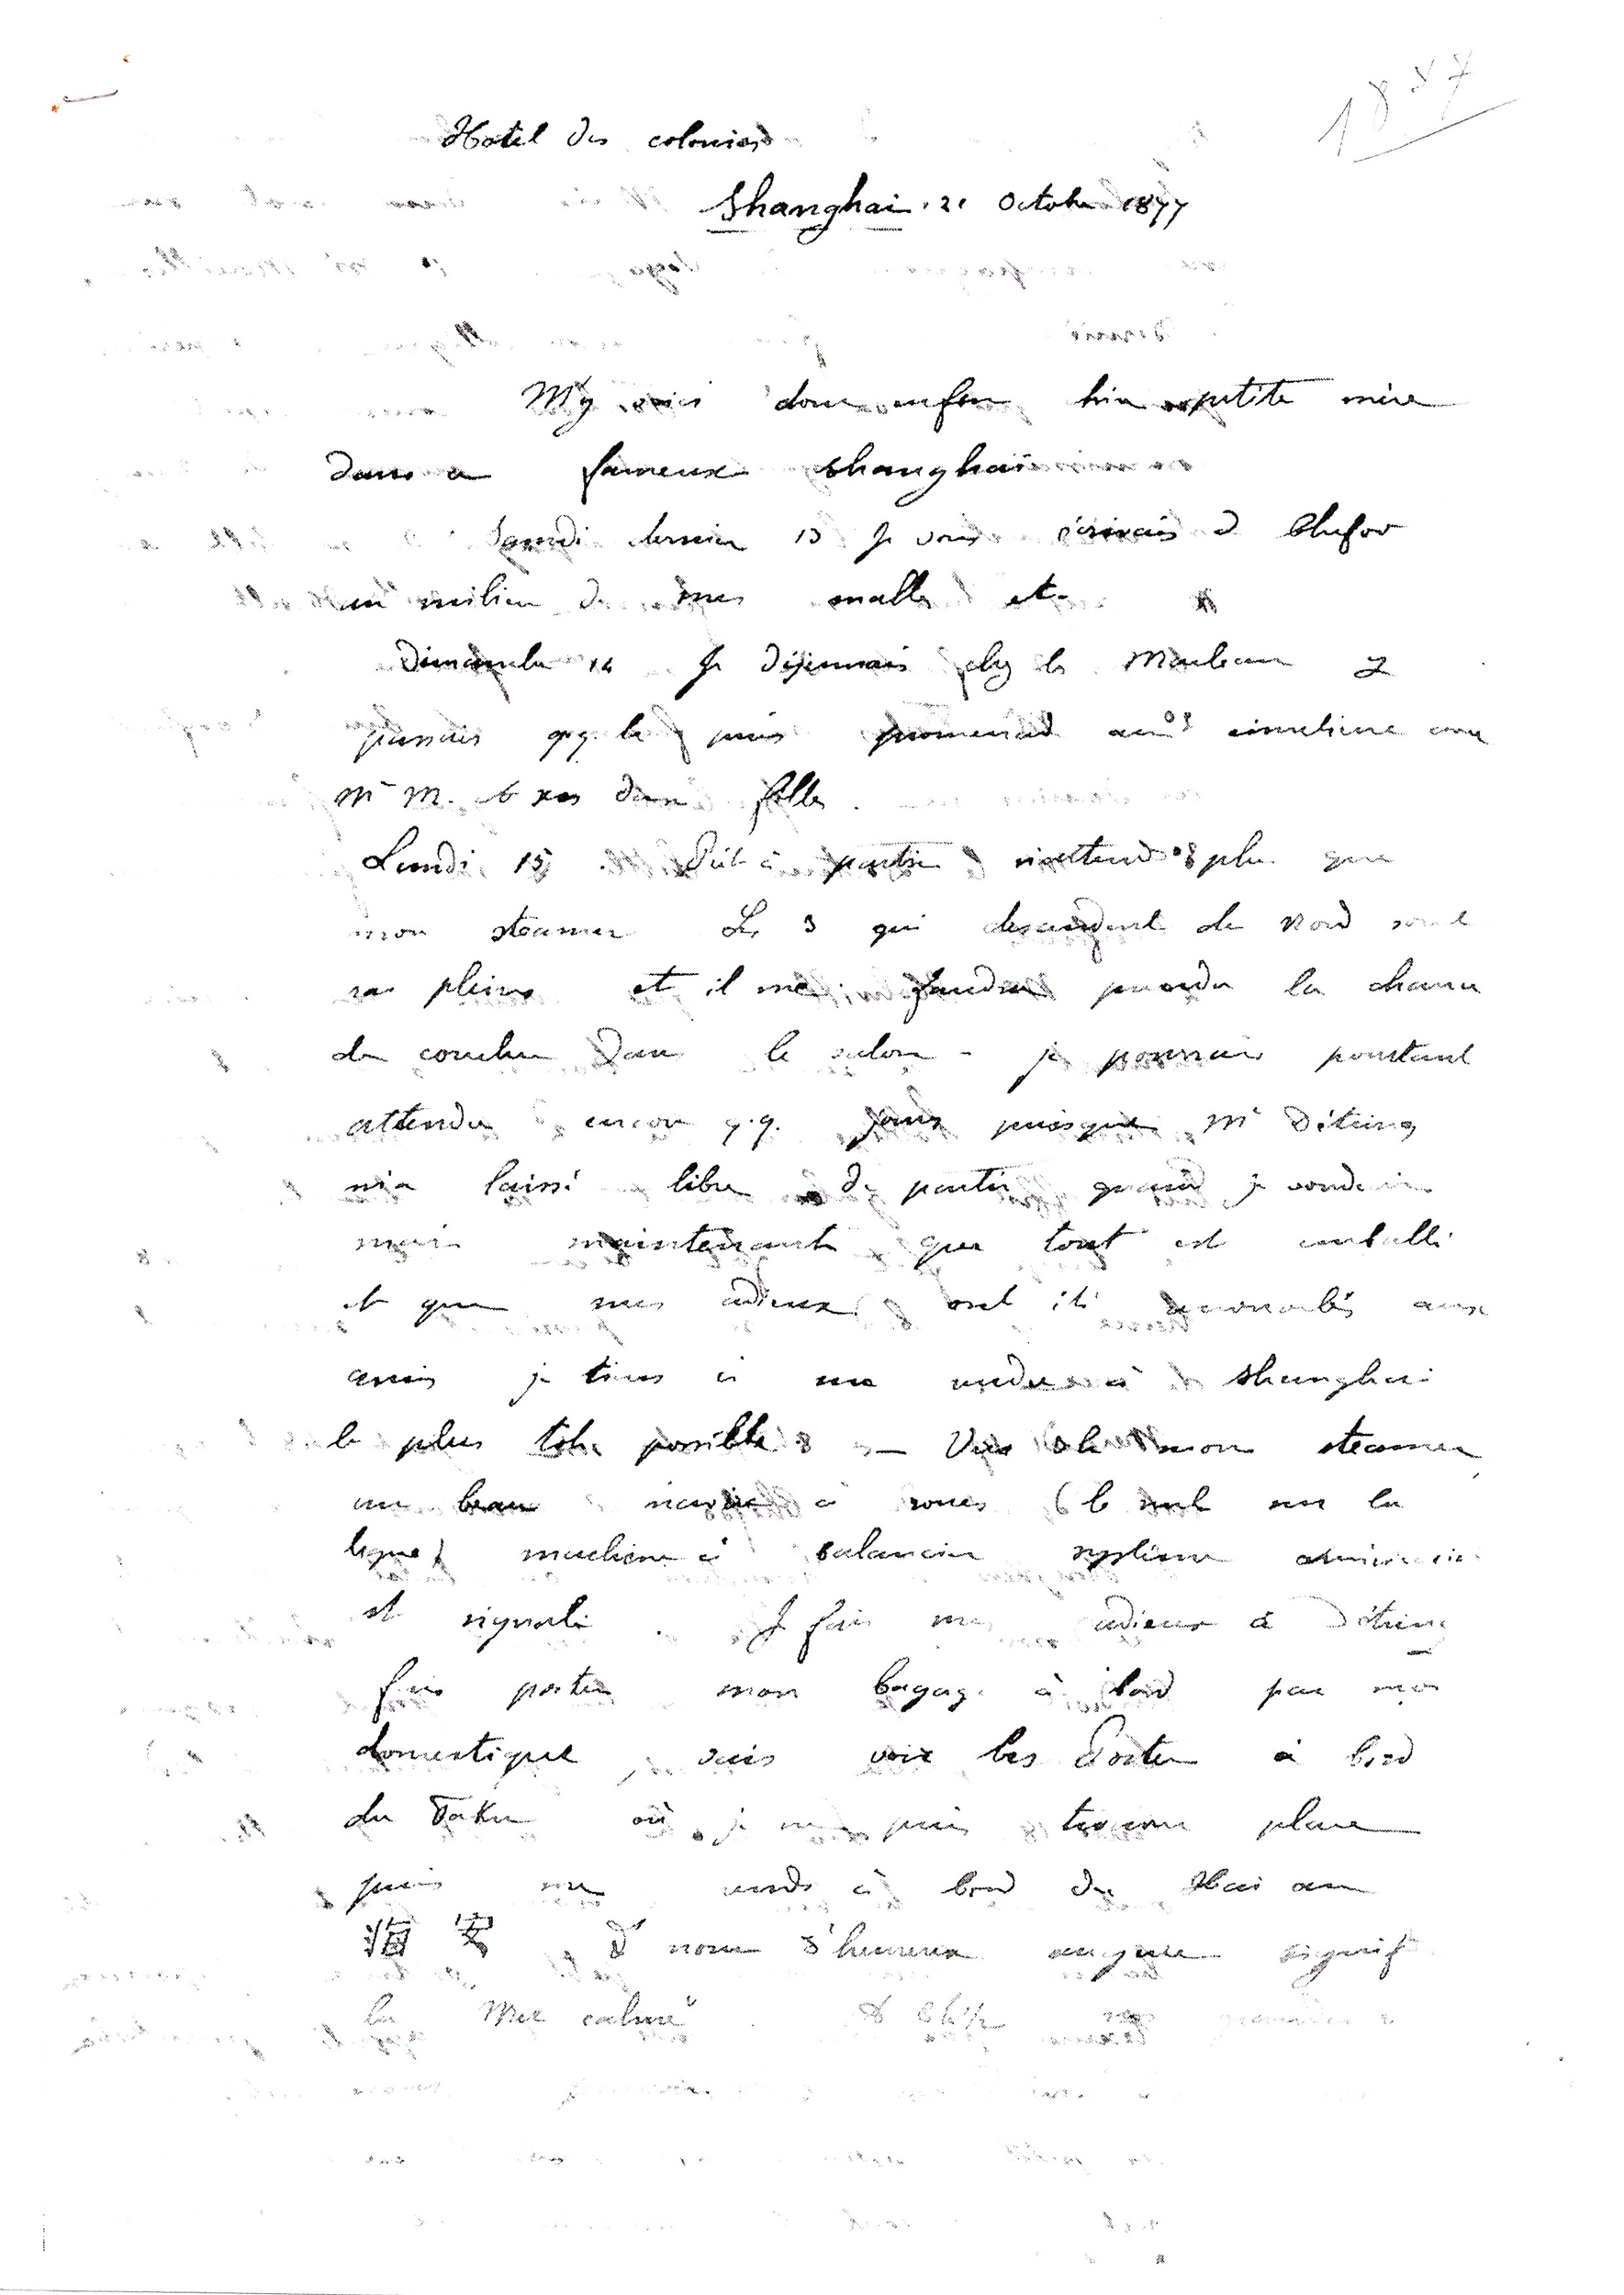 1877
Hotel des colonies
Shanghai . 21 Octobre 1877
M'y voici donc enfin bien petite mère
dans ce fameux Shanghaï
Samedi dernier 13 je vous écrivais de Chefoo
au milieu de mes malles etc
Dimanche 14 je déjeunais chez les
puis promenade au cimetière avec
Mr M. et ses deux filles .
Lundi 15 . Prêt à partir n'attends plus que
mon steamer Les 3 qui descendent du Nord sont
pleins et il me faudra prendre la chance
de coucher dans le salon - je pourrais pourtant
attendre encore q.q. jours puisque Mr Détring
m'a laissé libre de partir quand je voudrais
mais maintenant que tout est emballé
et que mes adieux ont été aux
amis je tiens à me rendre à Shanghai
le plus tôt possible — mon steamer
un beau navire à roues (le seul sur la
ligne) machine à balancier système américain
est signalé . Je fais mes adieux à Détring
fais porter mon bagage à bord par mon
domestique , vais voir les Porter à bord
du Taku où je ne puis trouver place
puis me rends à bord du Hai an
海 安 d nom d'heureux augure signif
la "Mer calme" .